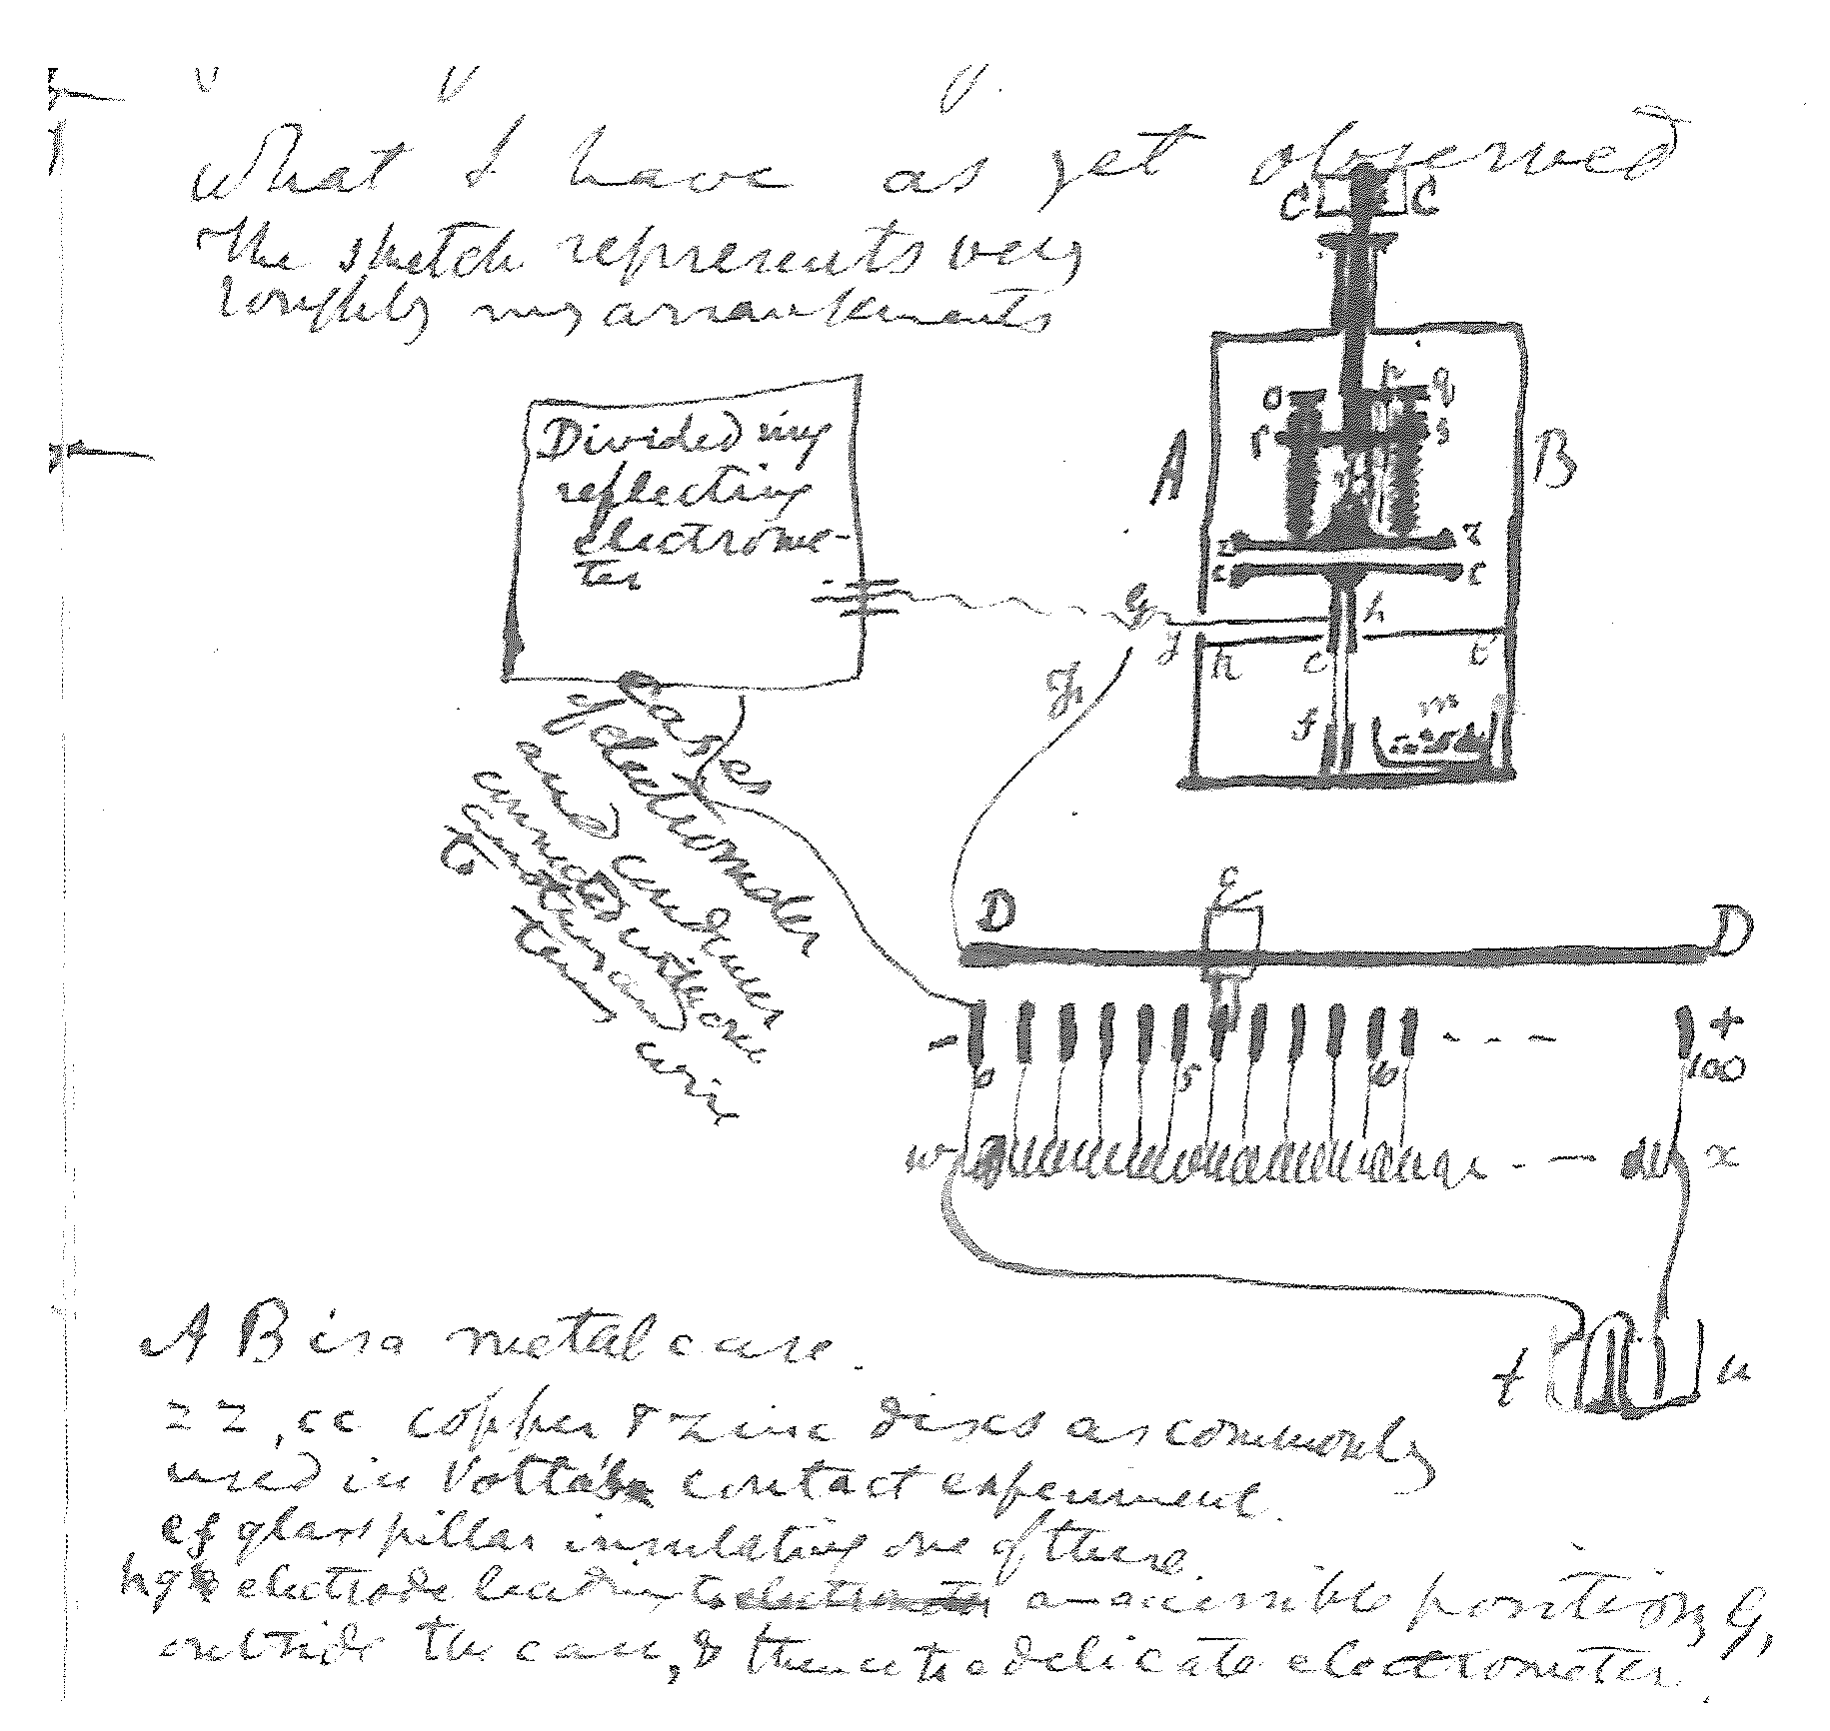 What I have as yet observed
The sketch represents very
roughly my arrankements
C C
A
B
o
p
q
r
s
z z
c c
h
g
k
c
t
f
m
G
Divided ring
reflecting
electrome-
ter
Cases
of electrometer
and condenser
connected with one
another and
to
terms
wire
D
D
-
0
5
10
- - -
+
100
w
x
t
u
A B is a metal case.
zz, cc copper & zinc discs as commonly
used in Volta's contact experiment.
ef glass pillar insulating one of these.
hg electrode leading to an accessible position, G,
outside the case, & thence to a delicate electrometer.